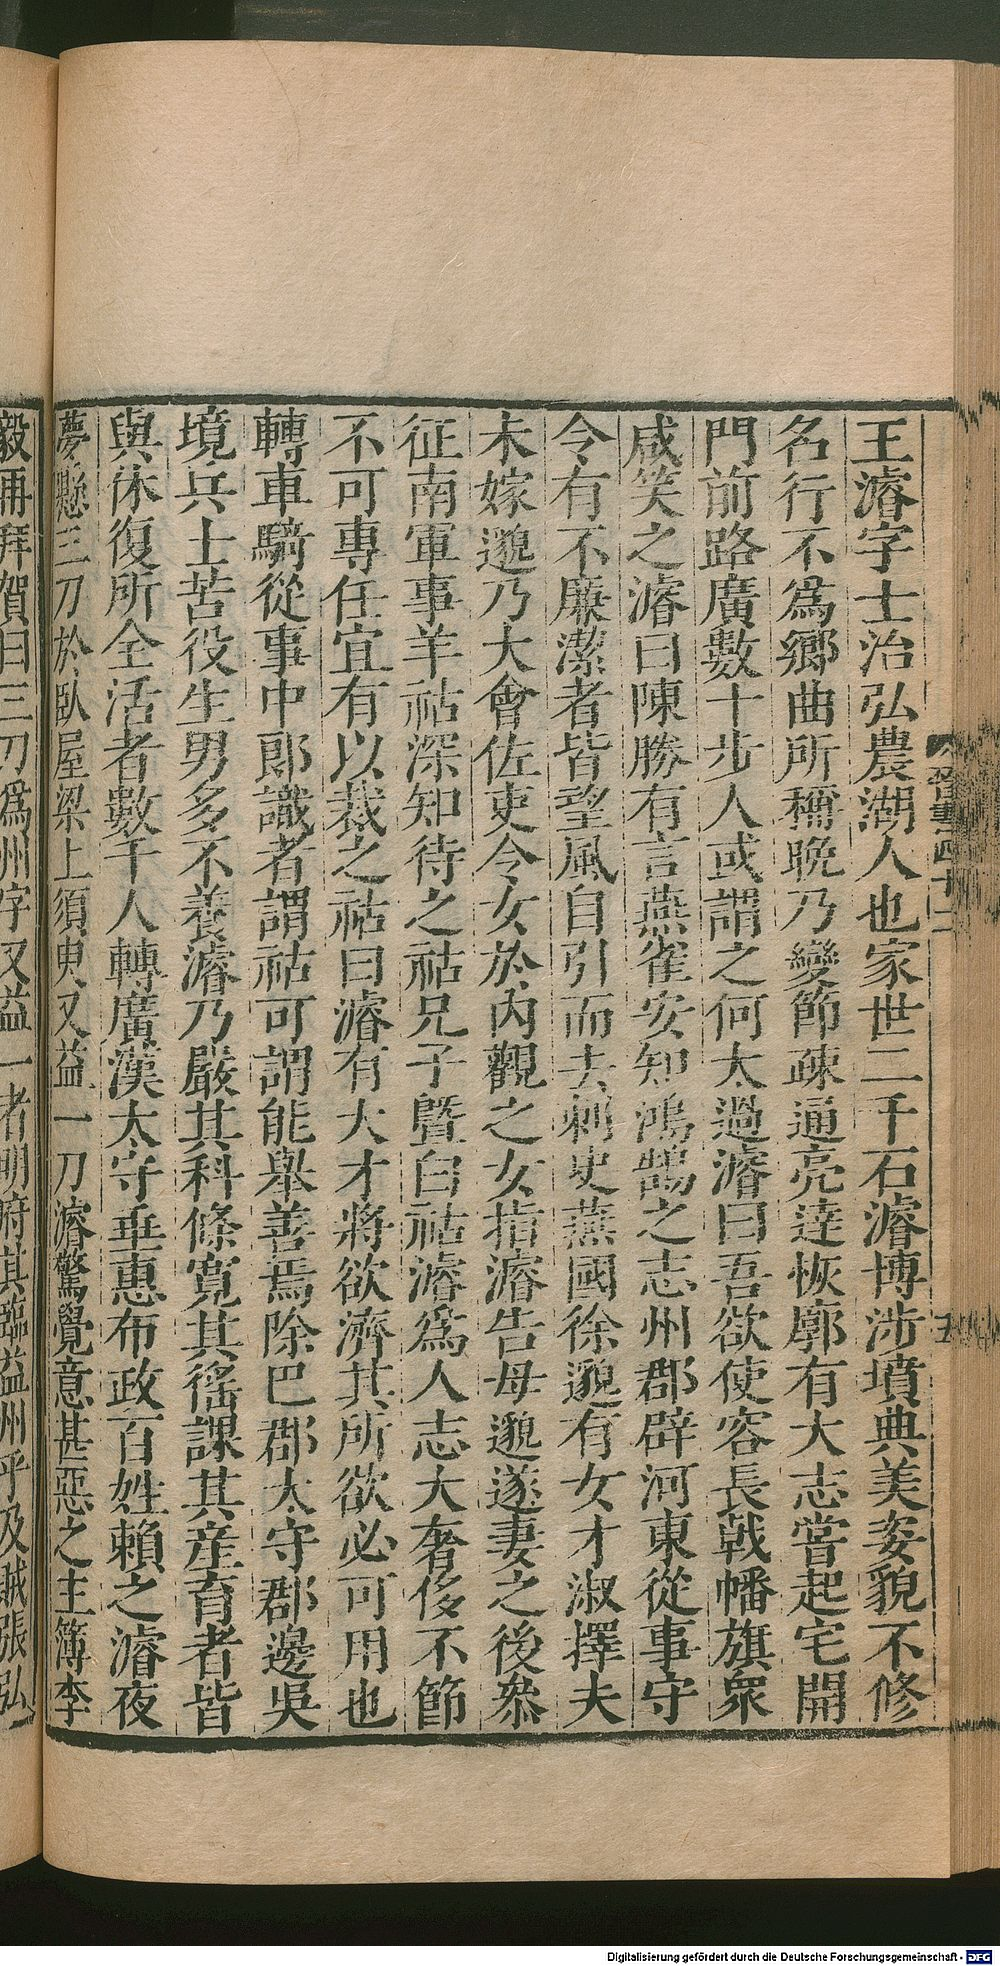 王濬字士治弘農湖人也家世二千石濬博涉墳典美姿貌不修
名行不爲鄉曲所稱晚乃變節疎通亮達恢廓有大志嘗起宅開
門前路廣數十步人或謂之何太過濬曰吾欲使容長戟幡旗衆
咸笑之濬曰陳勝有言燕雀安知鴻鵠之志州郡辟河東從事守
令有不廉潔者皆望風自引而去刺史燕國徐邈有女才淑擇夫
未嫁邈乃大會佐吏令女於內觀之女指濬告母邈遂妻之後叅
征南軍事羊祜深知待之祜兄子曁白祜濬爲人志大奢侈不節
不可專任宜有以裁之祜曰濬有大才將欲濟其所欲必可用也
轉車騎從事中郎識者謂祜可謂能舉善焉除巴郡太守郡邊吳
境兵士苦役生男多不養濬乃嚴其科條寬其徭課其產育者皆
與休復所全活者數千人轉廣漢太守垂惠布政百姓賴之濬夜
夢懸三刀於臥屋梁上須臾又益一刀濬驚覺意甚惡之主簿李
毅再拜賀曰三刀爲州字又益一者明府其臨益州乎及賊張弘
晉書四十二
五
Digitalisierung gefördert durch die Deutsche Forschungsgemeinschaft - DFG